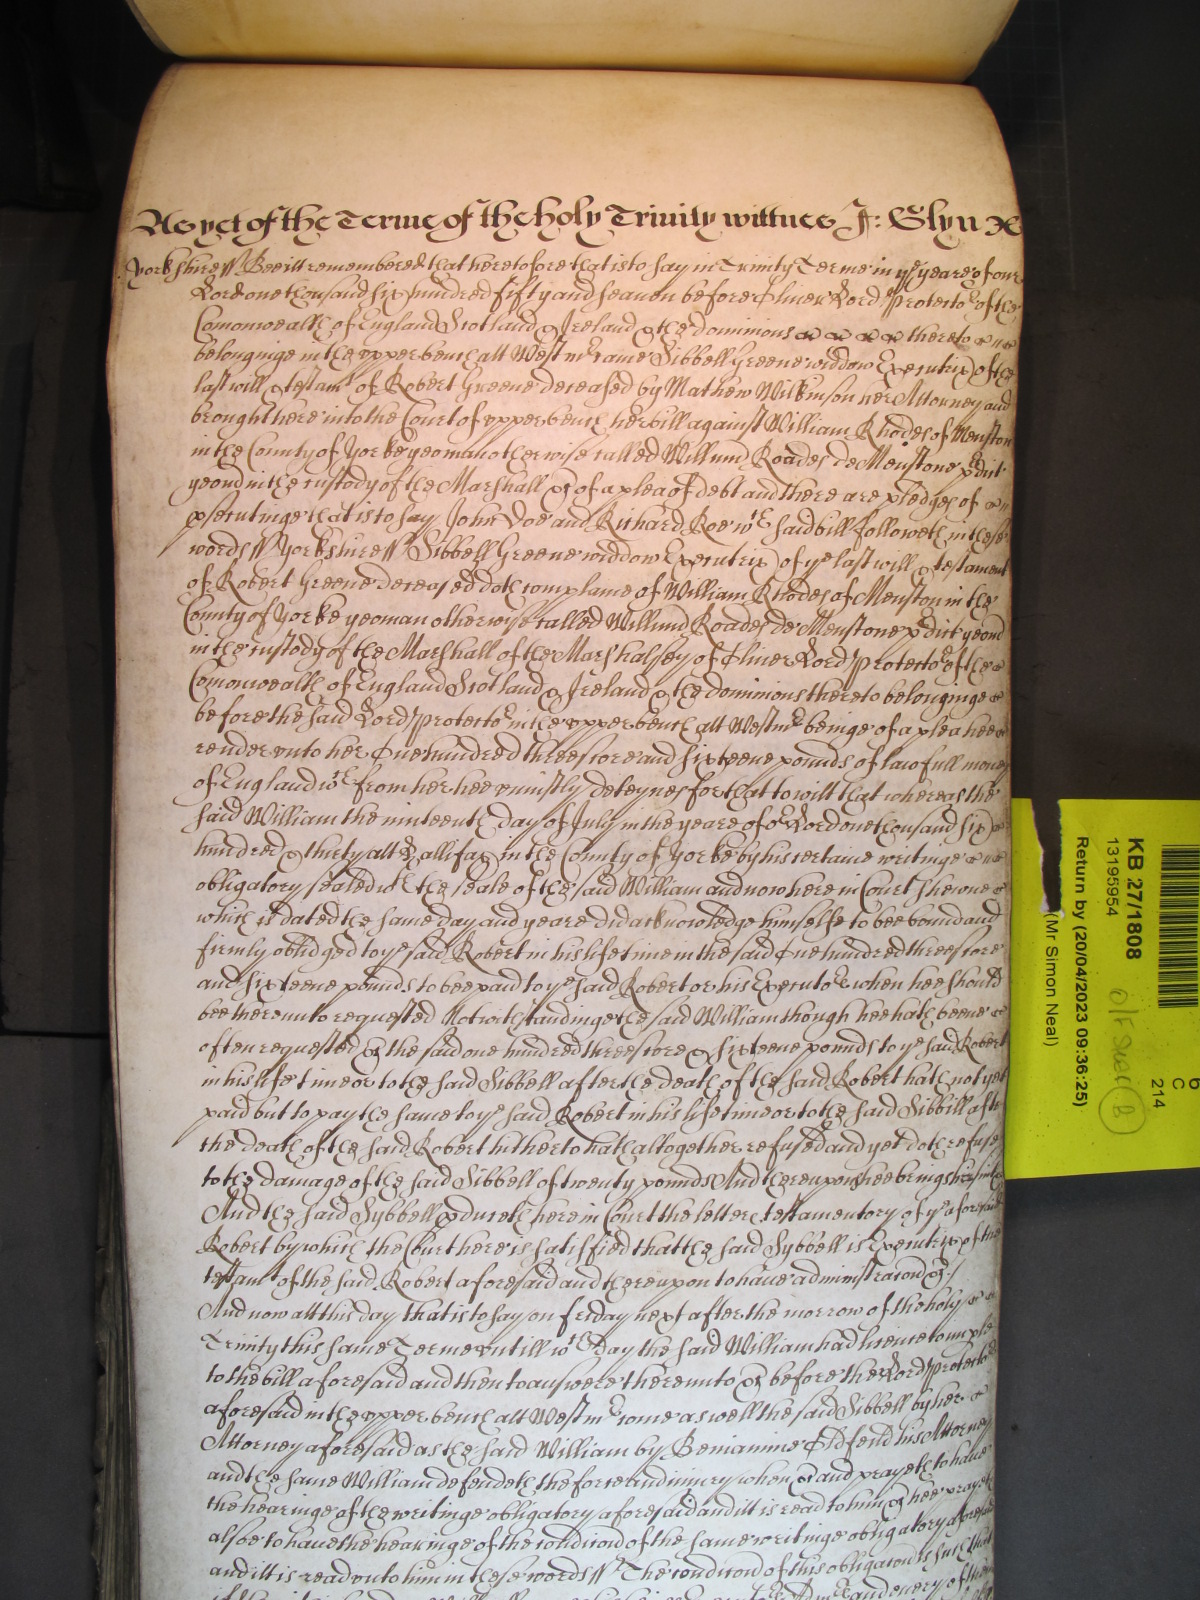 As yet of the Terme of the holy Trinity wittnes J: Glyn &c
Yorkshire ss Bee itt remembered that heretofore that is to say in Trinity Terme in ye yeare of our
Lord one thousand six hundred fifty and seaven before Oliver Lord Protector of the
Comonwealth of England Scotland & Ireland & the dominions thereto
belonginge in the upper bench att Westmr came Sibbell Greene widdow Executrix of the
last will & testamt of Robert Greene deceased by Mathew Wilkinson her Attorney and
brought here into the Court of upper bench her bill against William Rhodes of Menston
in the County of Yorke yeoman otherwise called Willmu Roades de Menstone pdict
yeom in the custody of the Marshall &c of a plea of debt and there are pledges of
psecutinge that is to say John Doe and Richard Roe wch said bill followeth in these
words ss Yorkshire ss Sibbell Greene widdow Executrix of ye last will & testament
of Robert Greene deceased doth complaine of William Rhodes of Menston in the
County of Yorke yeoman otherwise called Willmu Roades de Menstone pdict yeom
in the custody of the Marshall of the Marshalsey of Oliver Lord Protector of the
Comonwealth of England Scotland & Ireland & the dominions thereto belonginge
before the said Lord Protector in the upper bench att Westmr beinge of a plea hee
render unto her One hundred threescore and sixteene pounds of lawfull money
of England wch from her hee uniustly deteynes for that to witt that whereas the
said William the ninteenth day of July in the yeare of or Lord one thousand six
hundred & thirty att Hallifax in the County of Yorke by his certaine writinge
obligatory sealed wth the seale of the said William and now here in Court shewne
which is dated the same day and yeare did acknowledge himselfe to bee bound and
firmly obliged to ye said Robert in his life time in the said One hundred threescore
and sixteene pounds to bee paid to ye said Robert or his Executors when hee should
bee thereunto requested Notwithstandinge the said William though hee hath beene
often requested &c the said one hundred threescore & sixteene pounds to ye said Robert
in his life time or to the said Sibbell after the death of the said Robert hath not yet
paid but to pay the same to ye said Robert in his life time or to the said Sibbill after
the death of the said Robert hitherto hath altogether refused and yet doth refuse
to the damage of the said Sibbell of twenty pounds And thereupon shee brings her suite
And the said Sybbell pduceth here in Court the letters testamentory of ye aforesaid
Robert by which the Court here is satisfied that the said Sybbell is Executrix of the
testamt of the said Robert aforesaid and thereupon to have administracion &c
And now att this day that is to say on friday next after the morrow of the holy
Trinity this same Terme untill wch day the said William had licence to imple
to the bill aforesaid and then to answere thereunto &c before the Lord Protector
aforesaid in the upper bench att Westmr come as well the said Sibbell by her
Attorney aforesaid as the said William by Beniamine Oldfeild his Attorney
and the same William defendeth the force and iniury when &c and prayeth to have
the hearinge of the writinge obligatory aforesaid and itt is read to him &c hee prayeth
alsoe to have the hearinge of the condicion of the same writinge obligatory aforesaid
and itt is read unto him in these words ss The condicion of this obligacion is such that
KB 27/1808
13195954
Return by (20/04/2023 09:36:25)
(Mr Simon Neal)
C
214